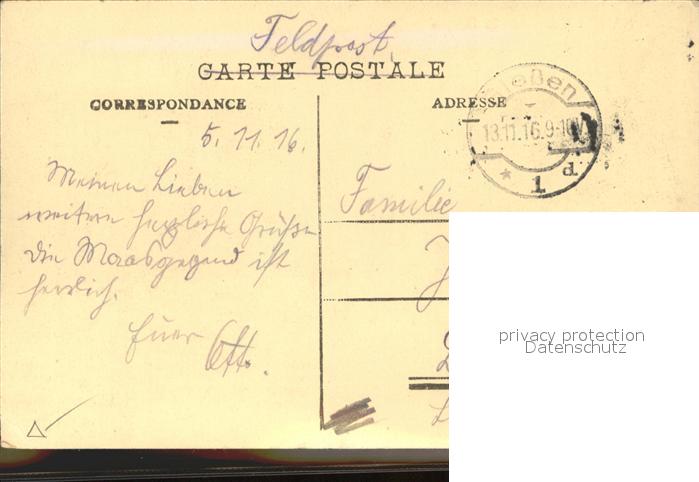 Feldpost
CARTE POSTALE
CORRESPONDANCE
ADRESSE
5. 11. 16.
Gießen
13.11.16.9-10V.
* 1 d
Meinen Lieben
weitere herzliche Grüße
die Maasgegend ist
herrlich.
Euer Otto.
Familie
privacy protection
Datenschutz